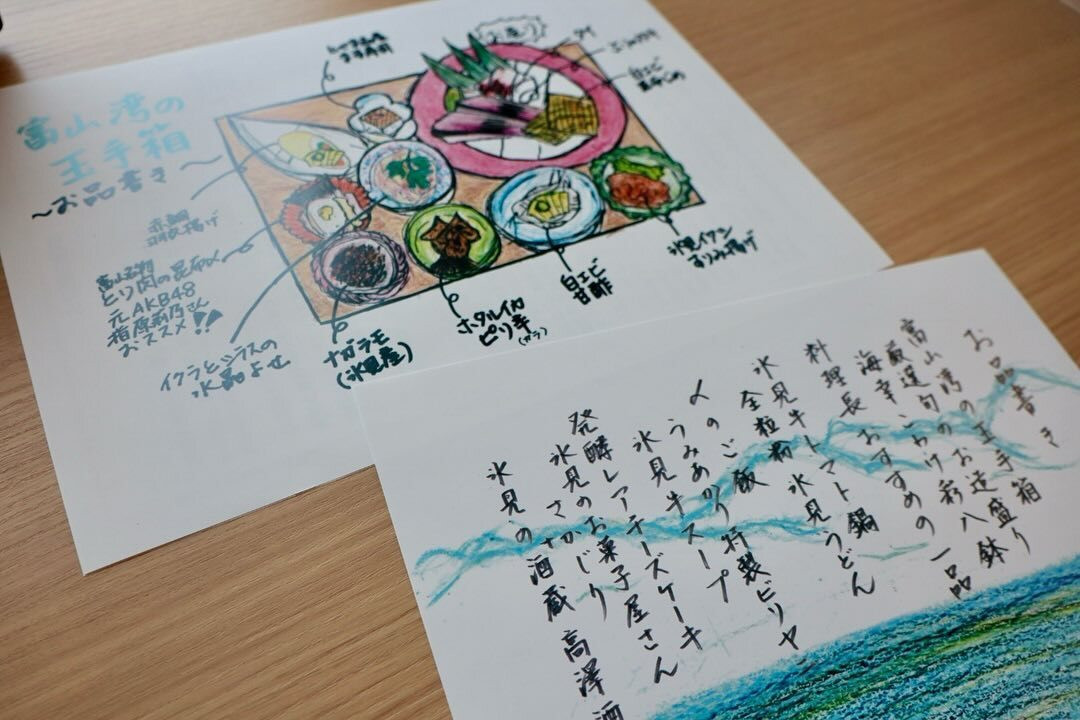 富山湾の
玉手箱
～お品書き～
お造り
タイ
白エビ
赤鯛
羽衣揚げ
とり肉の昆布〆
元AKB48
指原莉乃さん
おススメ!!
イクラとシラスの
水晶よせ
ナガラモ
(氷見産)
ホタルイカ
ピリ辛
白エビ
甘酢
氷見イワシ
すりみ揚げ
お品書き
富山湾の玉手箱
厳選旬のお造盛り
海幸こわけ彩八鉢
料理長おすすめの一品
氷見牛トマト鍋
全粒粉 氷見うどん
〆のご飯 特製ビリヤ
うみあかりスープ
氷見牛スープ
発酵レアチーズケーキ
氷見のお菓子屋さん
さかじり
氷見の酒蔵 高澤酒